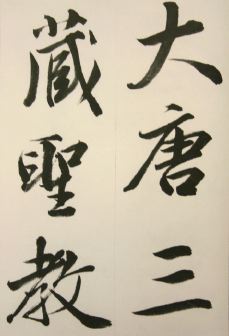 大唐三
蔵聖教